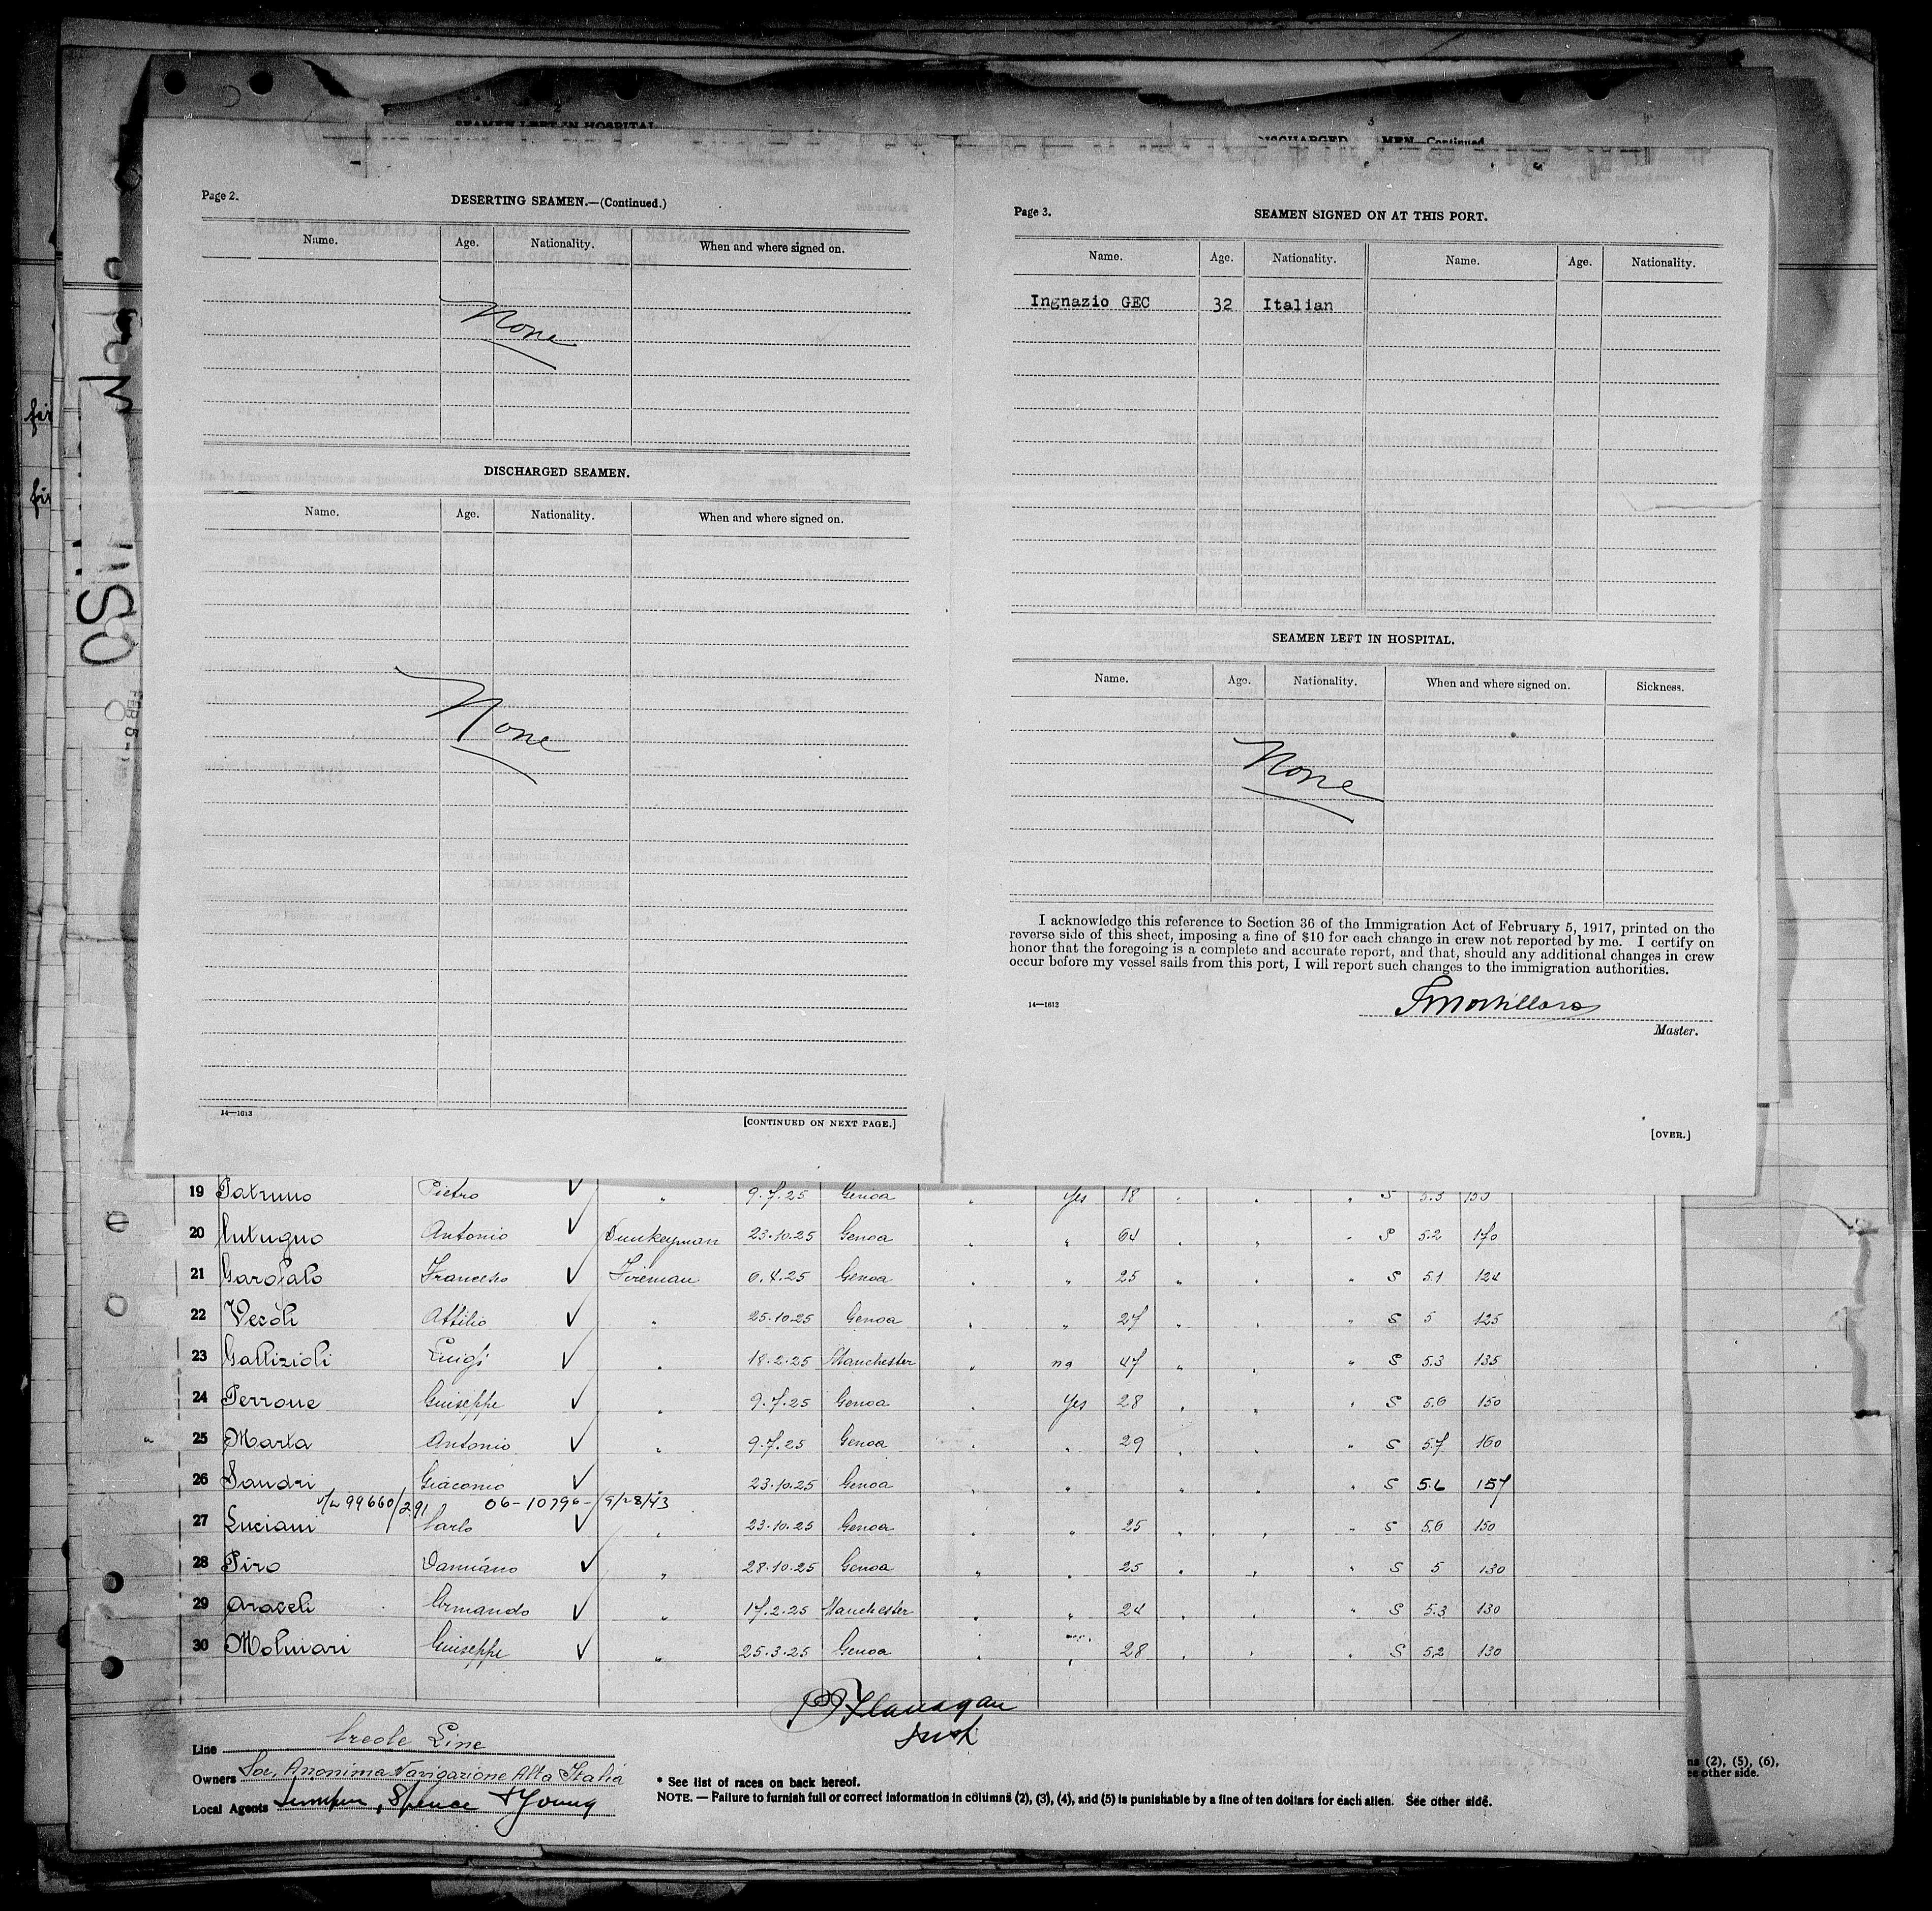 SEAMEN LEFT IN HOSPITAL
3
DISCHARGED MEN—Continued
Page 2.
DESERTING SEAMEN.—(Continued.)
Name. Age. Nationality. When and where signed on.
None
DISCHARGED SEAMEN.
Name. Age. Nationality. When and where signed on.
None
14—1613
[CONTINUED ON NEXT PAGE.]
Page 3.
SEAMEN SIGNED ON AT THIS PORT.
Name. Age. Nationality. Name. Age. Nationality.
Ingnazio GEC 32 Italian
SEAMEN LEFT IN HOSPITAL.
Name. Age. Nationality. When and where signed on. Sickness.
None
I acknowledge this reference to Section 36 of the Immigration Act of February 5, 1917, printed on the
reverse side of this sheet, imposing a fine of $10 for each change in crew not reported by me. I certify on
honor that the foregoing is a complete and accurate report, and that, should any additional changes in crew
occur before my vessel sails from this port, I will report such changes to the immigration authorities.
14—1612
Master.
[OVER.]
19 Patruno Pietro ✓ " 9.7.25 Genoa " Yes 18 " " " S 5.5 150
20 Cutugno Antonio ✓ Dunkeyman 23.10.25 Genoa " " 64 " " " S 5.2 170
21 Garofalo Francesco ✓ Fireman 6.4.25 Genoa " " 25 " " " S 5.1 124
22 Vecoli Attilio ✓ " 25.10.25 Genoa " " 27 " " " S 5 125
23 Gallizioli Luigi ✓ " 18.2.25 Manchester " no 47 " " " S 5.3 135
24 Perrone Guiseppe ✓ " 9.7.25 Genoa " Yes 28 " " " S 5.6 150
25 Marta Antonio ✓ " 9.7.25 Genoa " " 29 " " " S 5.7 160
26 Sandri Giacomo ✓ " 23.10.25 Genoa " " " " " S 5.6 157
V/L 99660/291 06-10796- 9/28/43
27 Luciani Carlo ✓ " 23.10.25 Genoa " " 25 " " " S 5.6 150
28 Piro Damiano ✓ " 28.10.25 Genoa " " 25 " " " S 5 130
29 Araceli Armando ✓ " 17.2.25 Manchester " " 24 " " " S 5.3 130
30 Molinari Guiseppe ✓ " 25.3.25 Genoa " " 28 " " " S 5.2 130
Flanagan
Insp
Line Creole Line
Owners Soc. Anonima Navigazione Alta Italia
Local Agents Spence & Young
* See list of races on back hereof.
NOTE. — Failure to furnish full or correct information in columns (2), (3), (4), and (5) is punishable by a fine of ten dollars for each alien. See other side.
ns (2), (5), (6),
ee other side.